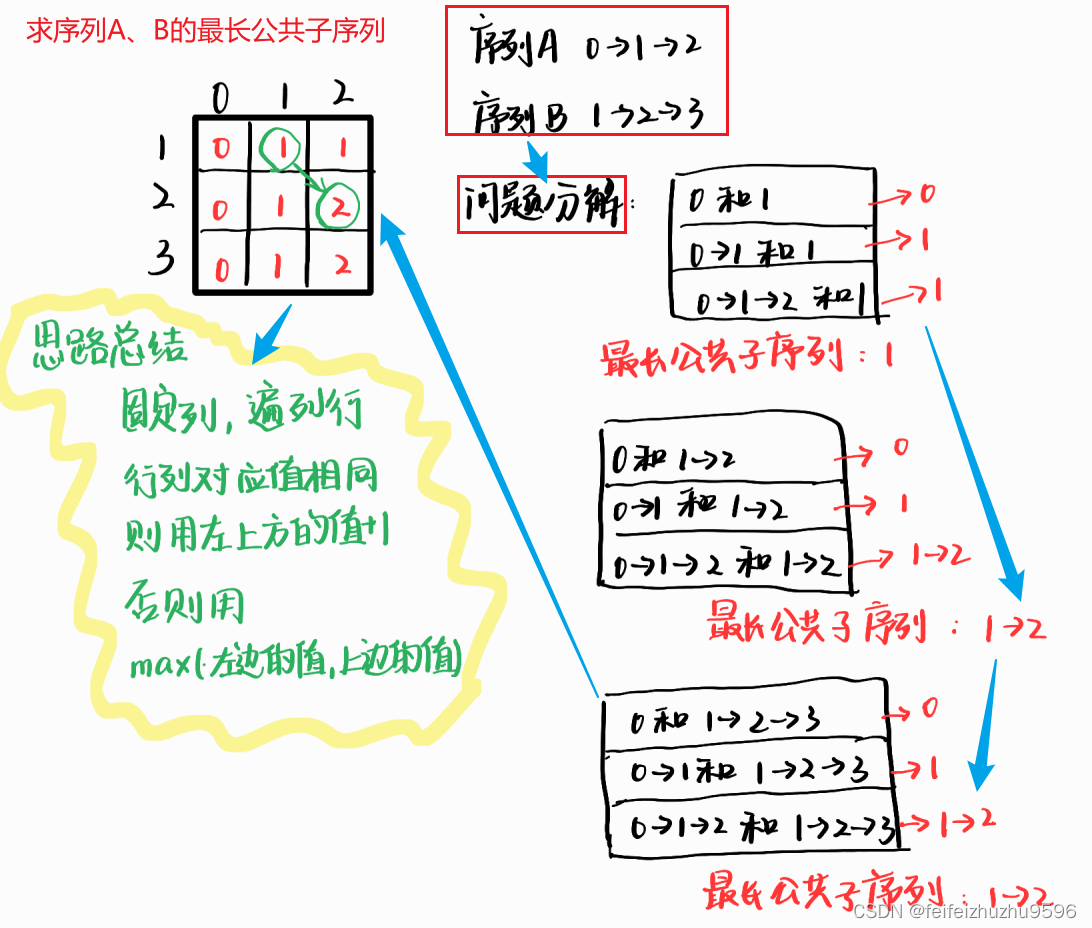 求序列A、B的最长公共子序列
序列A 0→1→2
序列B 1→2→3
0 1 2
1 0 1 1
2 0 1 2
3 0 1 2
问题分解:
0和1 →0
0→1和1 →1
0→1→2和1 →1
最长公共子序列:1
0和1→2 →0
0→1和1→2 →1
0→1→2和1→2 →1→2
最长公共子序列:1→2
0和1→2→3 →0
0→1和1→2→3 →1
0→1→2和1→2→3 →1→2
最长公共子序列:1→2
思路总结
固定列,遍列行
行列对应值相同
则用左上方的值+1
否则用
max(左边的值,上边的值)
CSDN @feifeizhuzhu9596